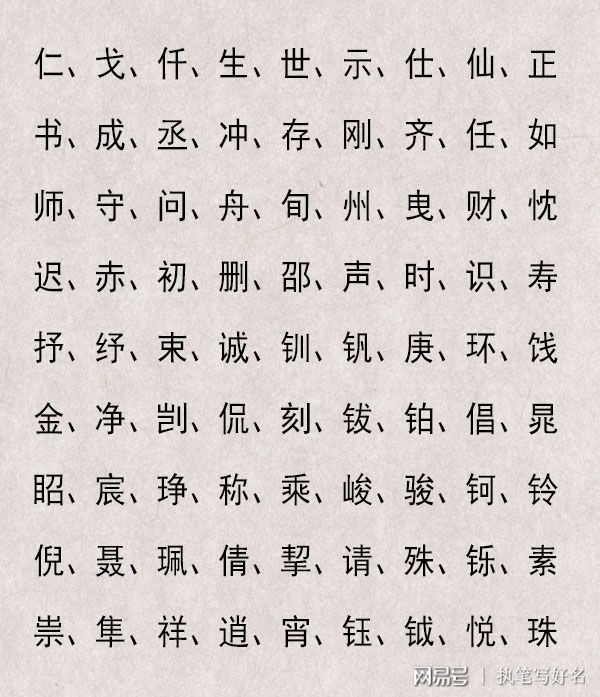 仁、戈、仟、生、世、示、仕、仙、正
书、成、丞、冲、存、刚、齐、任、如
师、守、问、舟、旬、州、曳、财、忱
迟、赤、初、删、邵、声、时、识、寿
抒、纾、束、诚、钏、钒、庚、环、饯
金、净、剀、侃、刻、钹、铂、倡、晁
眧、宸、琤、称、乘、峻、骏、钶、铃
倪、聂、珮、倩、挈、请、殊、铄、素
祟、隼、祥、逍、宵、钰、钺、悦、珠
网易号 | 执笔写好名